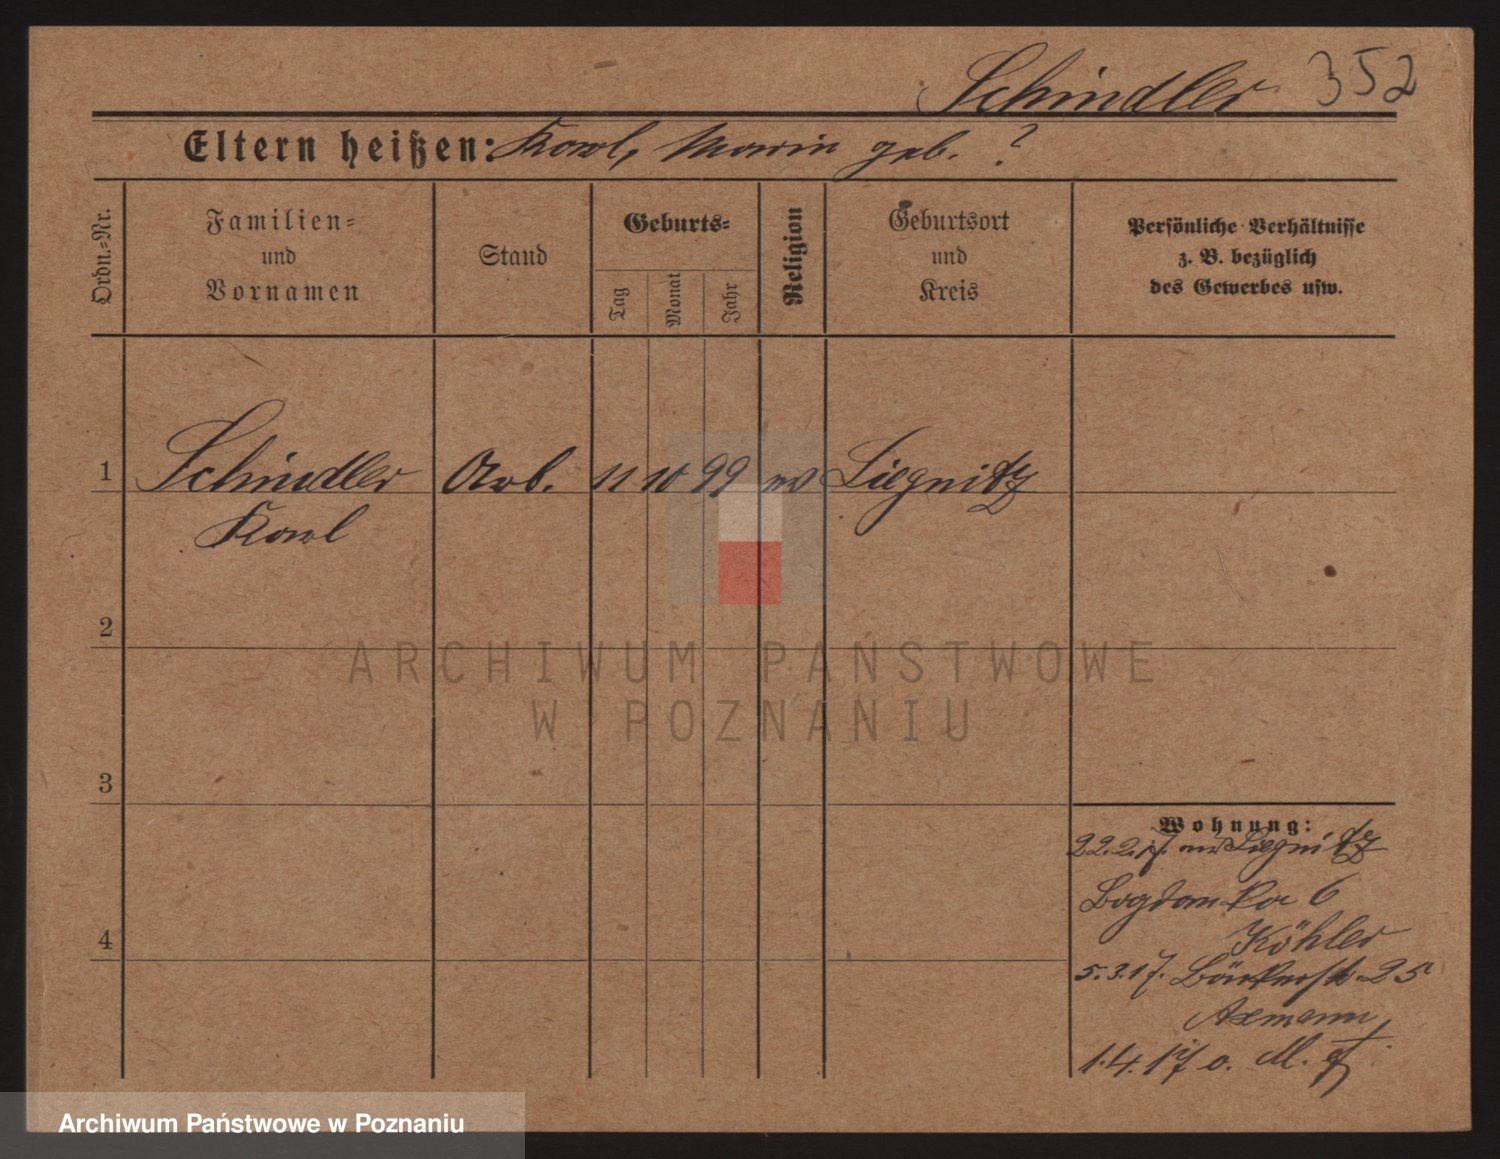 Schindler 352
Eltern heißen: Karl, Maria geb. ?
Ordn.-Nr.
Familien-
und
Vornamen
Stand
Geburts-
Tag
Monat
Jahr
Religion
Geburtsort
und
Kreis
Persönliche Verhältnisse
z. B. bezüglich
des Gewerbes usw.
1 Schindler Arb. 11 10 99 ev Liegnitz
Karl
2
3
4
Wohnung:
22.2.17. aus Liegnitz
Bogdanka 6
Köhler
5.3.17. Bäckerstr. 25
Axmann
1.4.17 o. M.
ARCHIWUM PAŃSTWOWE
W POZNANIU
Archiwum Państwowe w Poznaniu